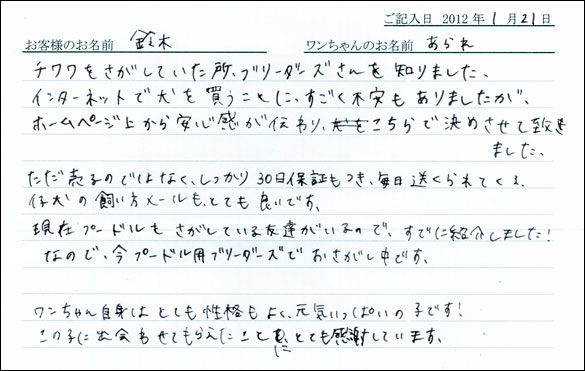 ご記入日 2012年1月21日
お客様のお名前 鈴木 ワンちゃんのお名前 あられ
チワワをさがしていた所、ブリーダーズさんを知りました、
インターネットで犬を買うことに、すごく不安もありましたが、
ホームページ上から安心感が伝わり、こちらで決めさせて致し
ました、
ただ売るのではなく、しっかり30日保証もつき、毎日送くられてくる、
仔犬の飼い方メールも、とても良いです。
現在プードルもさがしている友達がいるので、すでに紹介しました!
なので、今プードル用ブリーダーズでおさがし中です。
ワンちゃん自身はとても性格もよく、元気いっぱいの子です!
この子に出会わせてもらえたことに、とても感謝しています。